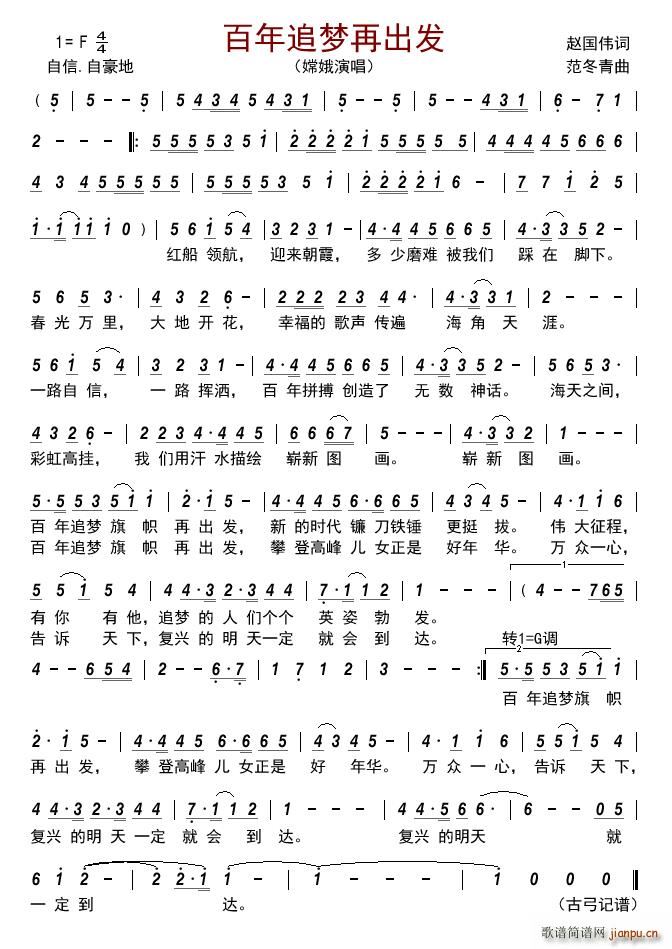 百年追梦再出发
1= F 4/4
赵国伟词
自信.自豪地
（嫦娥演唱）
范冬青曲
( 5 - - 5 | 5 4345 5431 | 5 - - 5 | 5 - - 431 | 6 - · 71 |
2 - - - ‖: 555 5351 | 2222 2155 55 5 | 444 4456 66 |
4 3 455555 | 55553 5 1 | 2222216 - | 7 7 1 25 |
1·111110 ) | 561 54 | 3231 - | 4·445665 | 4·3352 - |
红船 领航， 迎来朝霞， 多 少磨难 被我们 踩 在 脚下。
5 6 53· | 4 3 2 6 - | 222223 44· | 4·3331 | 2 - - - |
春 光 万 里， 大 地 开 花， 幸福的 歌声 传遍 海 角 天 涯。
561 54 | 3 231 - | 4·445665 | 4·3352 - | 5653· |
一路 自 信， 一 路 挥洒， 百 年拼搏 创造了 无 数 神话。 海天之间，
4326 - | 2234·445 | 6667 | 5 - - - | 4·3332 | 1 - - - |
彩虹高挂， 我 们用汗 水描绘 崭新 图 画。 崭 新 图 画。
5·55351 1 | 2·15 - | 4·445665 | 4345 - | 2·161 |
百 年追梦 旗 帜 再 出 发， 新 的时代 镰 刀铁锤 更挺 拔。 伟 大征程，
百 年追梦 旗 帜 再 出 发， 攀 登高峰 儿 女正是 好年 华。 万 众一心，
551 54 | 4·432·344 | 7·112 | 1 - - - | (4 - - 765
1
有 你 有 他，追梦 的 人 们个个 英 姿 勃 发。
告诉 天 下，复兴 的 明 天一定 就 会 到 达。 转1=G调
4 - - 654 | 2 - - 6·7 | 1 7 1 2 | 3 - - - :‖ 5·55351 1 |
2
百 年追梦旗 帜
2·15 - | 4·445 665 | 4345 - | 2·161 - | 551 54 |
再 出 发， 攀 登高峰 儿 女正是 好 年华。 万 众 一 心， 告诉 天 下，
4·432·344 | 7·112 | 1 - - - | 4·4566· | 6 - - 05 |
复兴 的明 天 一定 就 会 到 达。 复兴 的明天 就
6 1 2 - | 2 2·1 1 - | 1 - - - | 1 0 0 0 ‖
一 定 到 达。 （古弓记谱）
歌谱简谱网
jianpu.cn